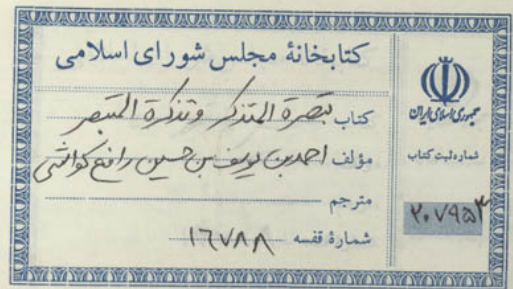 کتابخانهٔ مجلس شورای اسلامی
کتاب تبصرة المتذکر و تذکرة المتبصر
مؤلف احمد بن یوسف بن حسین رافع کواشی
مترجم
شمارهٔ قفسه ۱۶۷۸۸
جمهوری اسلامی ایران
شماره ثبت کتاب
۲۰۷۹۵۳